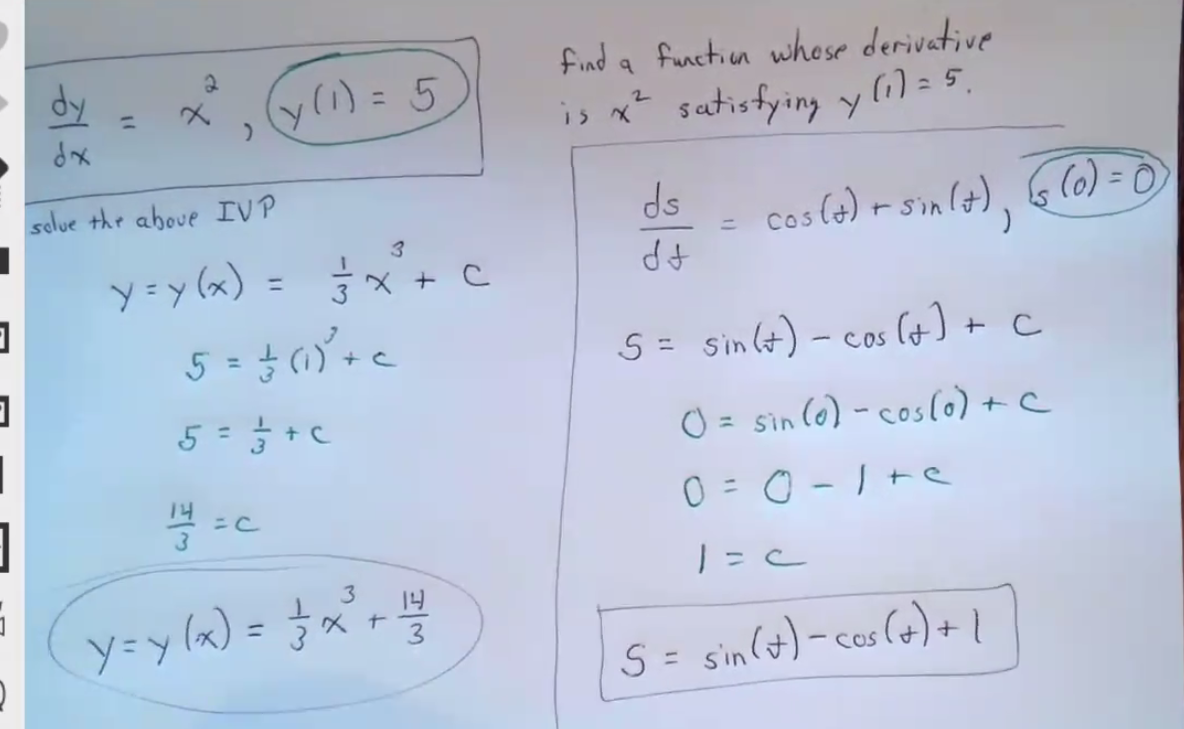 dy/dx = x², y(1) = 5
solve the above IVP
y = y(x) = 1/3 x³ + C
5 = 1/3 (1)³ + C
5 = 1/3 + C
14/3 = C
y = y(x) = 1/3 x³ + 14/3
find a function whose derivative
is x² satisfying y(1) = 5.
ds/dt = cos(t) + sin(t), s(0) = 0
S = sin(t) - cos(t) + C
0 = sin(0) - cos(0) + C
0 = 0 - 1 + C
1 = C
S = sin(t) - cos(t) + 1